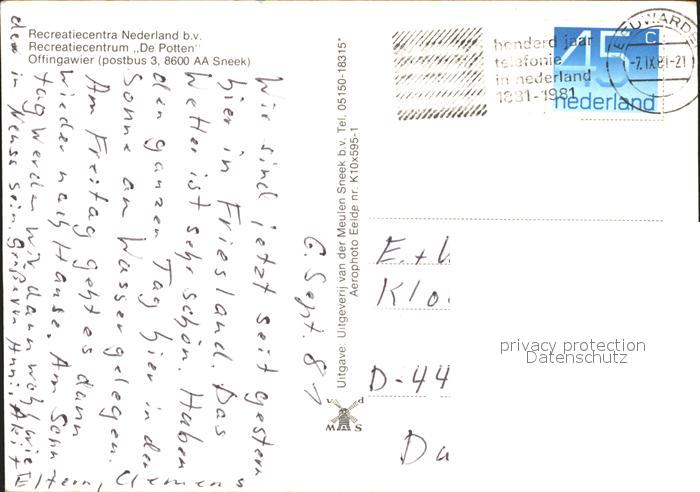 Recreatiecentra Nederland b.v.
Recreatiecentrum „De Potten"
Offingawier (postbus 3, 8600 AA Sneek)
6. Sept. 81
Wir sind jetzt seit gestern
hier in Friesland. Das
Wetter ist sehr schön. Haben
den ganzen Tag hier in der
Sonne am Wasser gelegen.
Am Freitag geht es dann
wieder nach Hause. Am Sonn
tag werden wir dann wohl wie
der in Neuss sein. Grüße von
Eltern, Clemens
Uitgave: Uitgeverij van der Meulen Sneek b.v. Tel. 05150-18315*
Aerophoto Eelde nr. K10x595-1
v d
M S
honderd jaar
telefonie
in nederland
1881-1981
LEEUWARDE
-7.IX.81-21
45 c
nederland
E. +
Klo
D-44
Du
privacy protection
Datenschutz